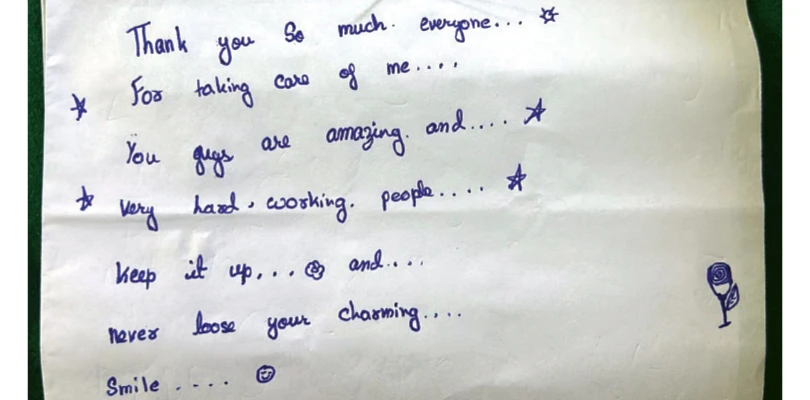 Thank you So much. everyone...
For taking care of me....
You guys are amazing. and....
Very hard. working. people....
keep it up,... and....
never loose your charming....
Smile ....